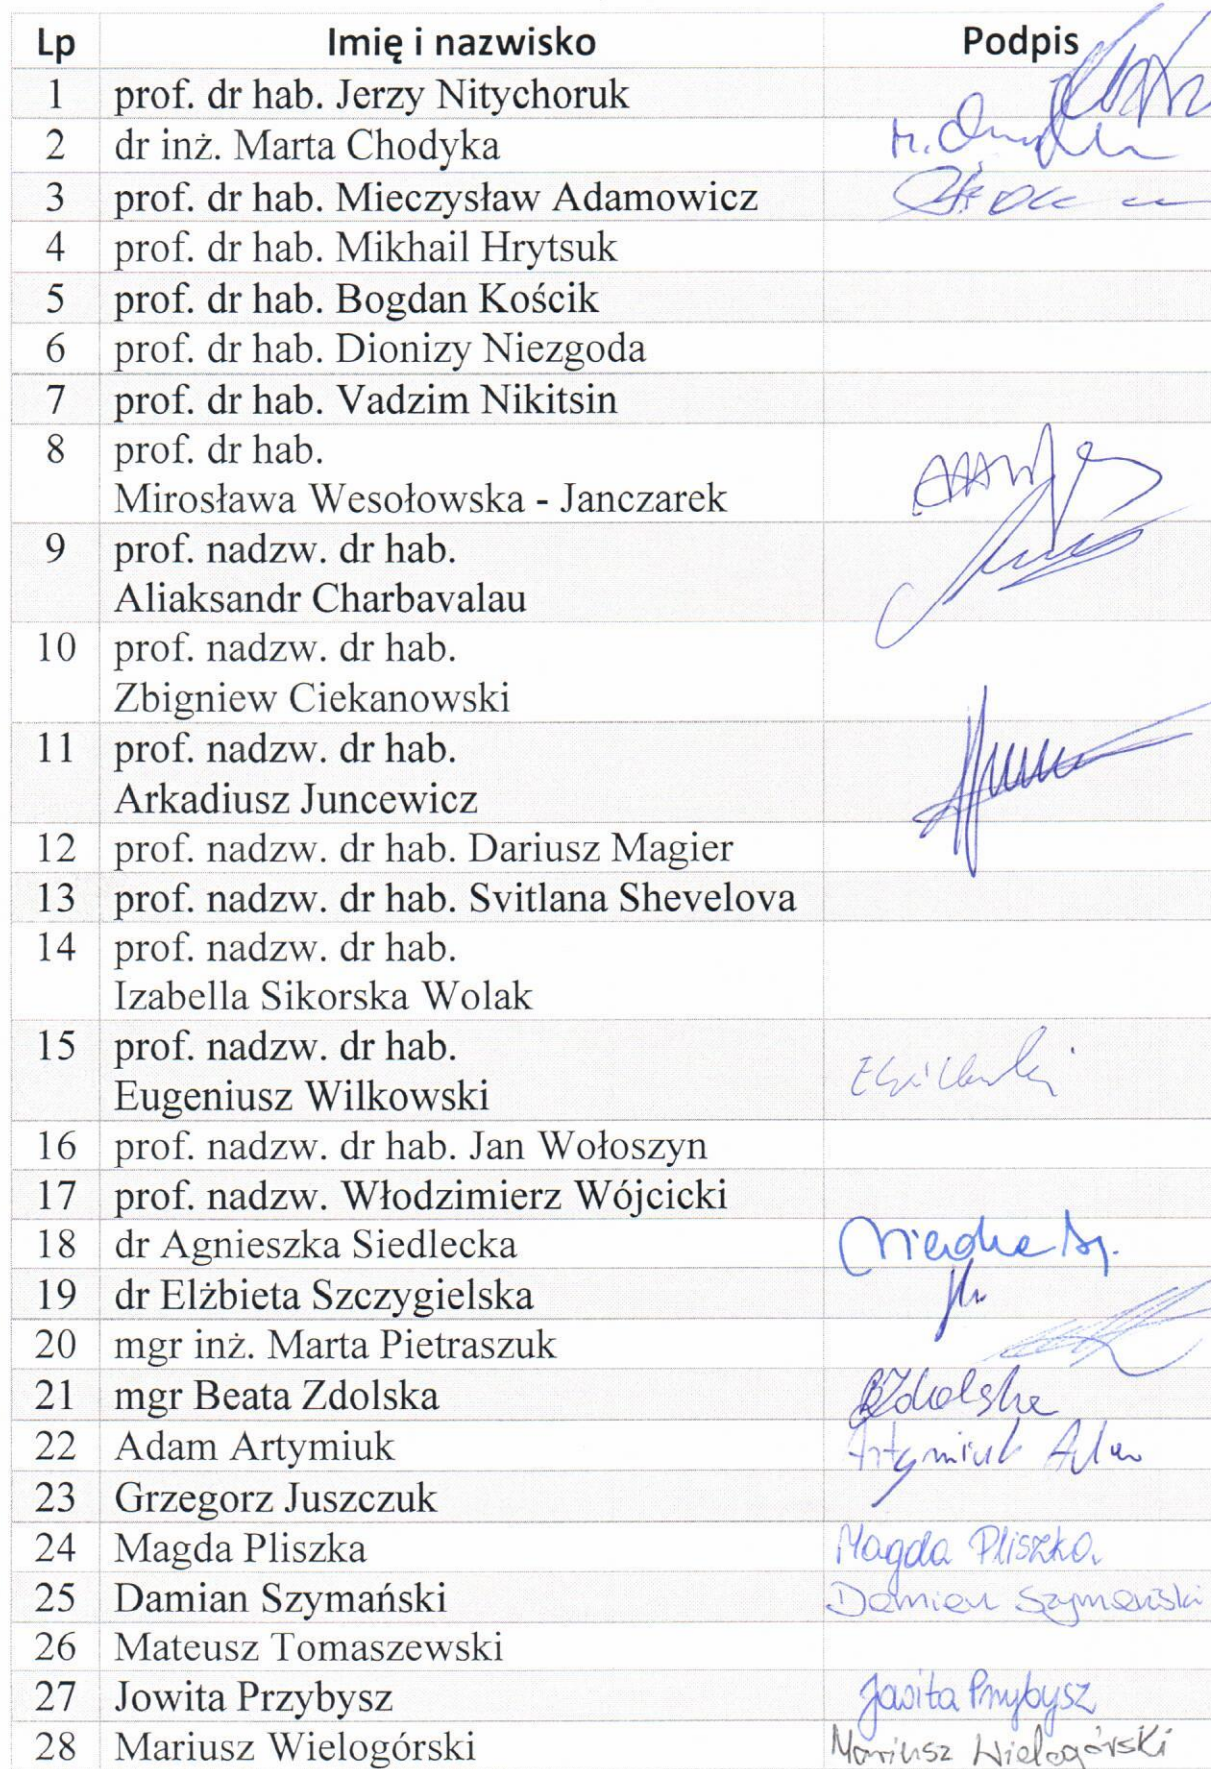 Lp Imię i nazwisko Podpis
1 prof. dr hab. Jerzy Nitychoruk
2 dr inż. Marta Chodyka
3 prof. dr hab. Mieczysław Adamowicz
4 prof. dr hab. Mikhail Hrytsuk
5 prof. dr hab. Bogdan Kościk
6 prof. dr hab. Dionizy Niezgoda
7 prof. dr hab. Vadzim Nikitsin
8 prof. dr hab.
Mirosława Wesołowska - Janczarek
9 prof. nadzw. dr hab.
Aliaksandr Charbavalau
10 prof. nadzw. dr hab.
Zbigniew Ciekanowski
11 prof. nadzw. dr hab.
Arkadiusz Juncewicz
12 prof. nadzw. dr hab. Dariusz Magier
13 prof. nadzw. dr hab. Svitlana Shevelova
14 prof. nadzw. dr hab.
Izabella Sikorska Wolak
15 prof. nadzw. dr hab.
Eugeniusz Wilkowski
16 prof. nadzw. dr hab. Jan Wołoszyn
17 prof. nadzw. Włodzimierz Wójcicki
18 dr Agnieszka Siedlecka
19 dr Elżbieta Szczygielska
20 mgr inż. Marta Pietraszuk
21 mgr Beata Zdolska BZdolska
22 Adam Artymiuk Artymiuk Adam
23 Grzegorz Juszczuk
24 Magda Pliszka Magda Pliszka
25 Damian Szymański Damian Szymański
26 Mateusz Tomaszewski
27 Jowita Przybysz Jowita Przybysz
28 Mariusz Wielogórski Mariusz Wielogórski